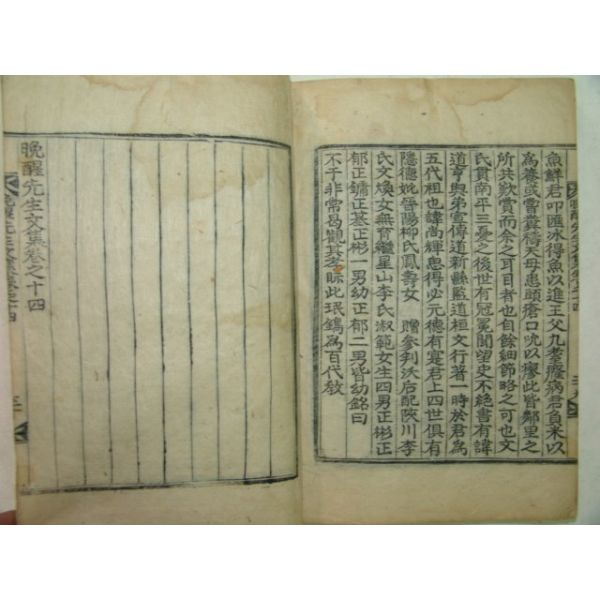 魚鮮君叩匯冰得魚以進王父九耋癃病君負米以
爲養或嘗糞禱天母患頭瘡口吮以瘳此皆鄰里之
所共歎賞而余之耳目者也自餘細節略之可也文
氏貫南平三憂之後世有冠冕聞望史不絶書有諱
道亨與弟宣傳道新縣監道桓文行著一時於君爲
五代祖也諱尚輝思得必元德有寔君上四世俱有
隱德妣晉陽柳氏鳳壽女 贈參判沃后配陜川李
氏文煥女無育繼星山李氏淑範女生四男正彬正
郁正鏞正基正彬一男幼正郁二男皆幼銘曰
不于非常曷觀其孝眎此珉鐫爲百代教
晩醒先生文集卷之十四